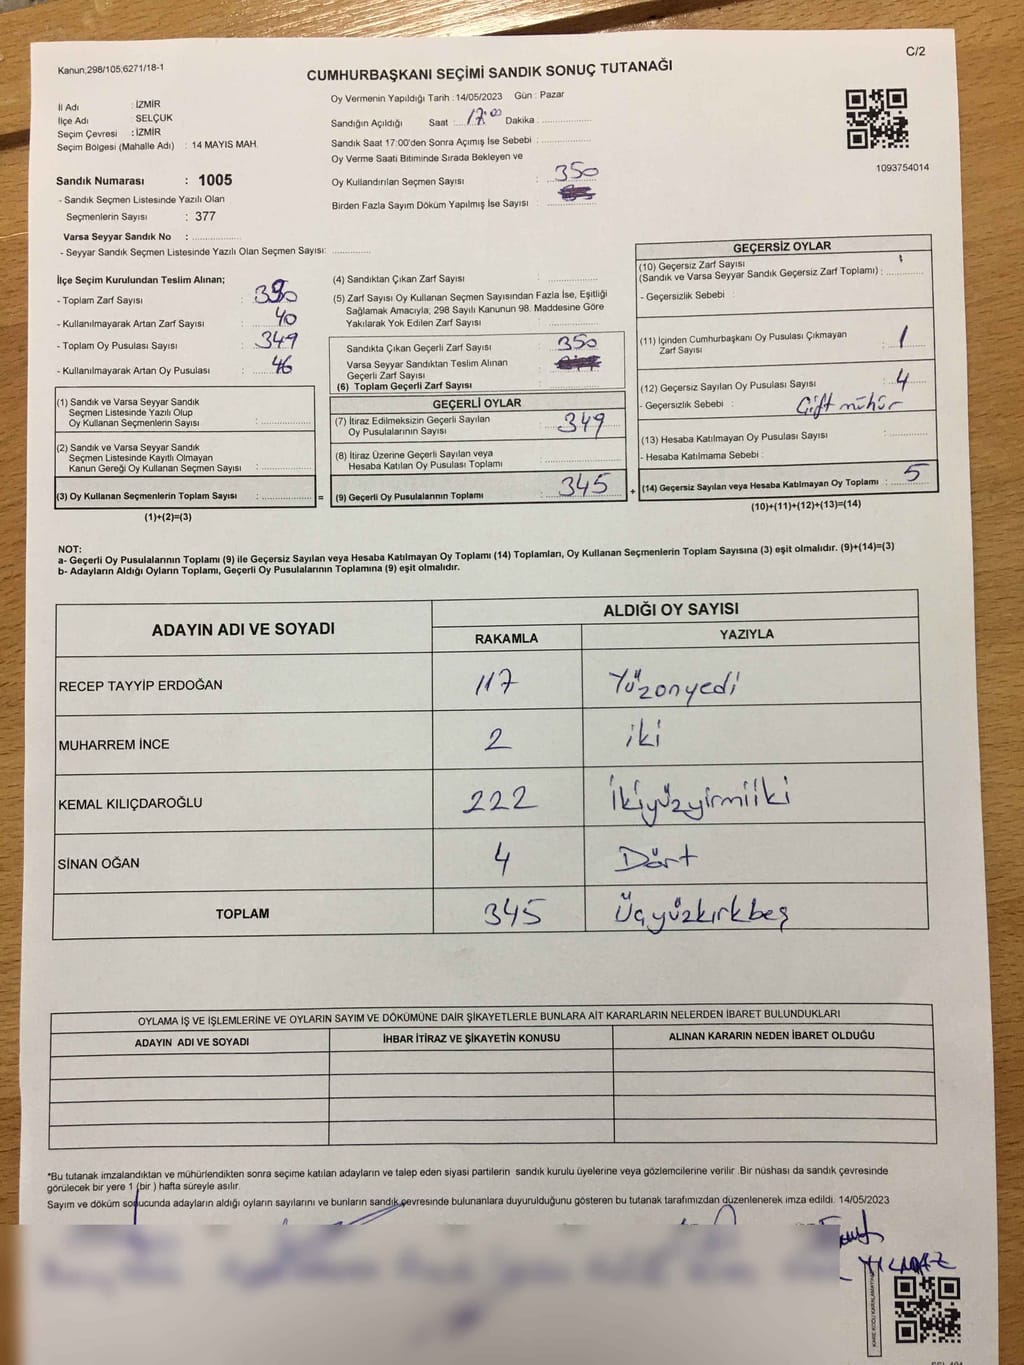 C/2
Kanun,298/105;6271/18-1
CUMHURBAŞKANI SEÇİMİ SANDIK SONUÇ TUTANAĞI
İl Adı : İZMİR
İlçe Adı : SELÇUK
Seçim Çevresi : İZMİR
Seçim Bölgesi (Mahalle Adı) : 14 MAYIS MAH.
Oy Vermenin Yapıldığı Tarih : 14/05/2023 Gün : Pazar
Sandığın Açıldığı Saat : 17:00 Dakika :
Sandık Saat 17:00'den Sonra Açımış İse Sebebi :
Oy Verme Saati Bitiminde Sırada Bekleyen ve
Oy Kullandırılan Seçmen Sayısı : 350
Birden Fazla Sayım Döküm Yapılmış İse Sayısı :
1093754014
Sandık Numarası : 1005
- Sandık Seçmen Listesinde Yazılı Olan
Seçmenlerin Sayısı : 377
Varsa Seyyar Sandık No :
- Seyyar Sandık Seçmen Listesinde Yazılı Olan Seçmen Sayısı:
İlçe Seçim Kurulundan Teslim Alınan;
- Toplam Zarf Sayısı : 390
- Kullanılmayarak Artan Zarf Sayısı : 40
- Toplam Oy Pusulası Sayısı : 349
- Kullanılmayarak Artan Oy Pusulası : 46
(1) Sandık ve Varsa Seyyar Sandık
Seçmen Listesinde Yazılı Olup
Oy Kullanan Seçmenlerin Sayısı :
(2) Sandık ve Varsa Seyyar Sandık
Seçmen Listesinde Kayıtlı Olmayan
Kanun Gereği Oy Kullanan Seçmen Sayısı :
(3) Oy Kullanan Seçmenlerin Toplam Sayısı : =
(1)+(2)=(3)
(4) Sandıktan Çıkan Zarf Sayısı :
(5) Zarf Sayısı Oy Kullanan Seçmen Sayısından Fazla İse, Eşitliği
Sağlamak Amacıyla; 298 Sayılı Kanunun 98. Maddesine Göre
Yakılarak Yok Edilen Zarf Sayısı :
Sandıkta Çıkan Geçerli Zarf Sayısı : 350
Varsa Seyyar Sandıktan Teslim Alınan
Geçerli Zarf Sayısı
(6) Toplam Geçerli Zarf Sayısı :
GEÇERLİ OYLAR
(7) İtiraz Edilmeksizin Geçerli Sayılan
Oy Pusulalarının Sayısı : 349
(8) İtiraz Üzerine Geçerli Sayılan veya
Hesaba Katılan Oy Pusulası Toplamı :
(9) Geçerli Oy Pusulalarının Toplamı : 345 +
GEÇERSİZ OYLAR
(10) Geçersiz Zarf Sayısı
(Sandık ve Varsa Seyyar Sandık Geçersiz Zarf Toplamı) :
- Geçersizlik Sebebi :
(11) İçinden Cumhurbaşkanı Oy Pusulası Çıkmayan
Zarf Sayısı : 1
(12) Geçersiz Sayılan Oy Pusulası Sayısı : 4
- Geçersizlik Sebebi : Çift mühür
(13) Hesaba Katılmayan Oy Pusulası Sayısı :
- Hesaba Katılmama Sebebi :
(14) Geçersiz Sayılan veya Hesaba Katılmayan Oy Toplamı : 5
(10)+(11)+(12)+(13)=(14)
NOT:
a- Geçerli Oy Pusulalarının Toplamı (9) ile Geçersiz Sayılan veya Hesaba Katılmayan Oy Toplamı (14) Toplamları, Oy Kullanan Seçmenlerin Toplam Sayısına (3) eşit olmalıdır. (9)+(14)=(3)
b- Adayların Aldığı Oyların Toplamı, Geçerli Oy Pusulalarının Toplamına (9) eşit olmalıdır.
ADAYIN ADI VE SOYADI
ALDIĞI OY SAYISI
RAKAMLA YAZIYLA
RECEP TAYYİP ERDOĞAN 117 Yüzonyedi
MUHARREM İNCE 2 iki
KEMAL KILIÇDAROĞLU 222 İkiyüzyirmiiki
SİNAN OĞAN 4 Dört
TOPLAM 345 Üçyüzkırkbeş
OYLAMA İŞ VE İŞLEMLERİNE VE OYLARIN SAYIM VE DÖKÜMÜNE DAİR ŞİKAYETLERLE BUNLARA AİT KARARLARIN NELERDEN İBARET BULUNDUKLARI
ADAYIN ADI VE SOYADI İHBAR İTİRAZ VE ŞİKAYETİN KONUSU ALINAN KARARIN NEDEN İBARET OLDUĞU
*Bu tutanak imzalandıktan ve mühürlendikten sonra seçime katılan adayların ve talep eden siyasi partilerin sandık kurulu üyelerine veya gözlemcilerine verilir .Bir nüshası da sandık çevresinde
görülecek bir yere 1 (bir ) hafta süreyle asılır.
Sayım ve döküm sonucunda adayların aldığı oyların sayılarını ve bunların sandık çevresinde bulunanlara duyurulduğunu gösteren bu tutanak tarafımızdan düzenlenerek imza edildi. 14/05/2023
YILMAZ